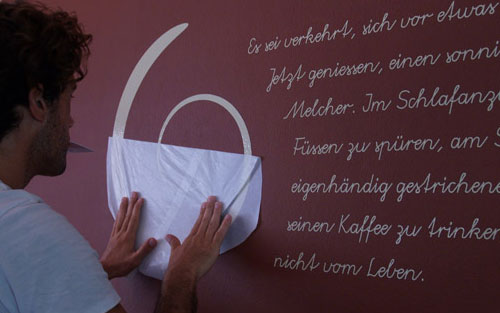 6
Es sei verkehrt, sich vor etwas
Jetzt geniessen, einen sonni
Melcher. Im Schlafanz
Füssen zu spüren, am
eigenhändig gestrichene
seinen Kaffee zu trinken
nicht vom Leben.